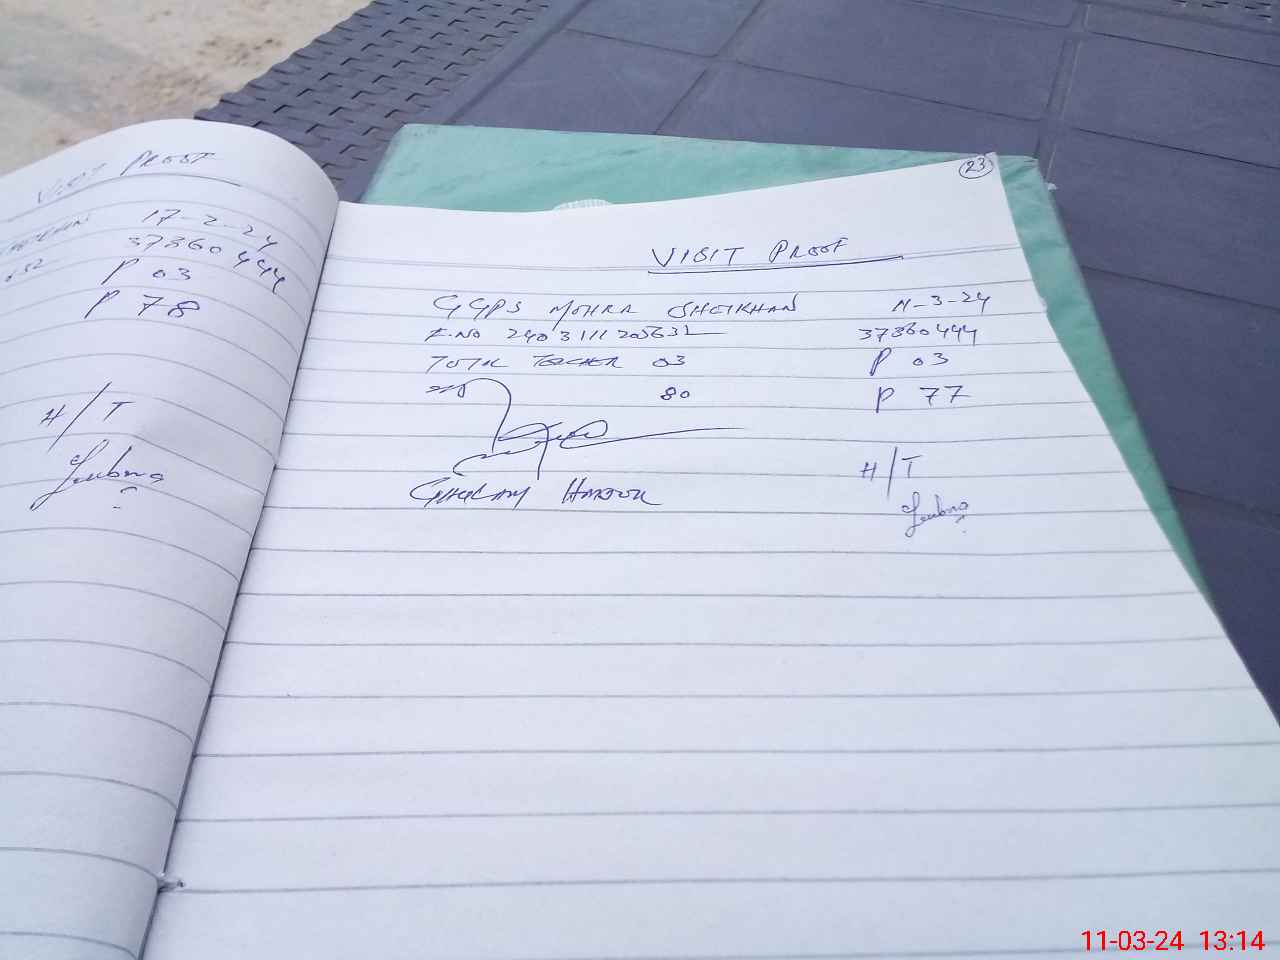 VISIT PROOF
17-2-24
37360444
P 03
P 78
H/T
Lubna
23
VISIT PROOF
GGPS MOHRA SHEIKHAN 11-3-24
37360444
TOTAL TEACHER 03 P 03
80 P 77
GHULAM
H/T
Lubna
11-03-24 13:14